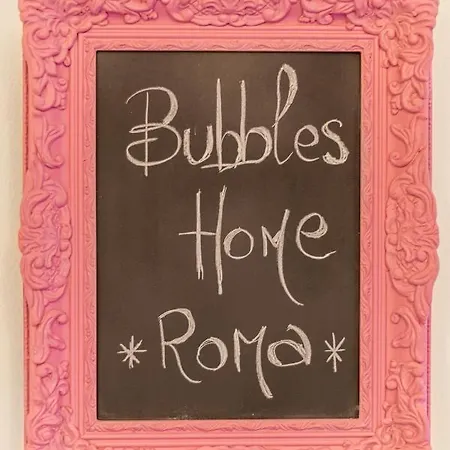 Bubbles
Home
*Roma*